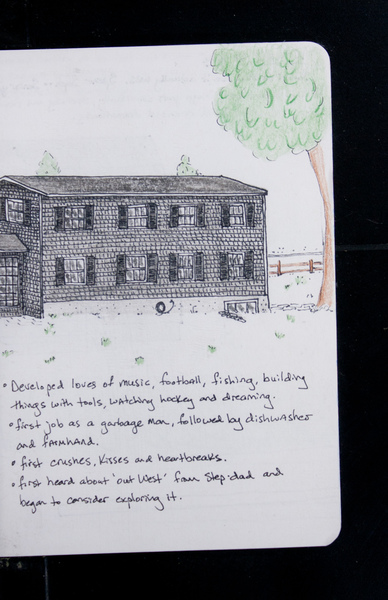 • Developed loves of music, football, fishing, building
things with tools, watching hockey and dreaming.
• first job as a garbage man, followed by dishwasher
and farmhand.
• first crushes, kisses and heartbreaks.
• first heard about 'out West' from step-dad and
began to consider exploring it.